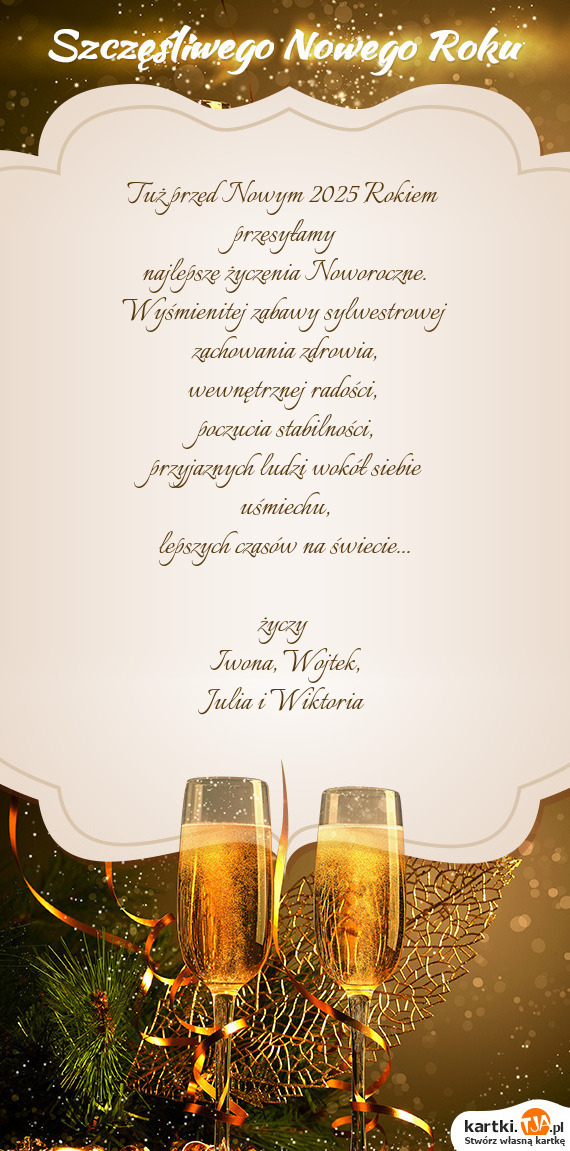 Szczęśliwego Nowego Roku
Tuż przed Nowym 2025 Rokiem
przesyłamy
najlepsze życzenia Noworoczne.
Wyśmienitej zabawy sylwestrowej
zachowania zdrowia,
wewnętrznej radości,
poczucia stabilności,
przyjaznych ludzi wokół siebie
uśmiechu,
lepszych czasów na świecie...
życzy
Iwona, Wojtek,
Julia i Wiktoria
kartki.TJA.pl
Stwórz własną kartkę